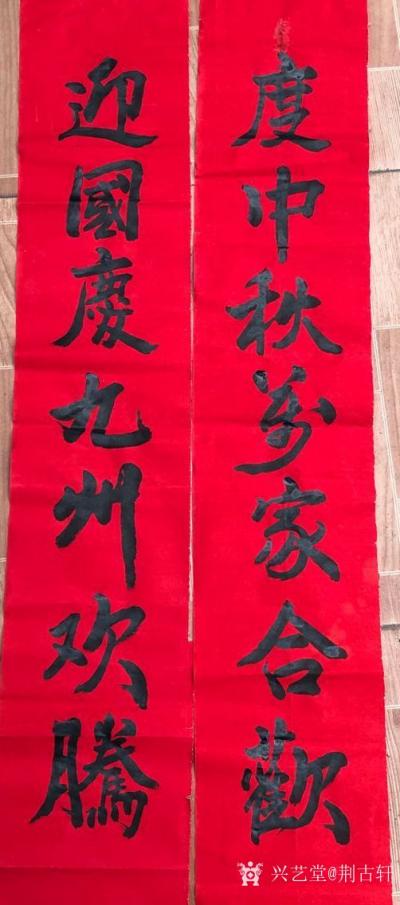 度中秋萬家合歡
迎國慶九州欢騰
兴艺堂@荆古轩